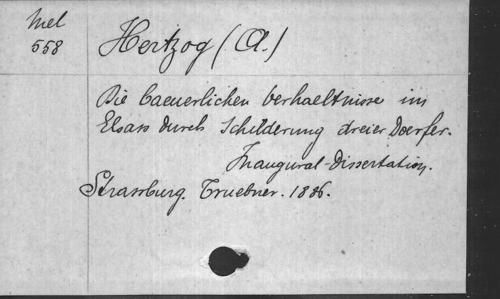 Mel
558
Hertzog (A.)
Die baeuerlichen Verhaeltnisse im
Elsass durch Schilderung dreier Doerfer.
Inaugural-Dissertation.
Strassburg. Truebner. 1886.